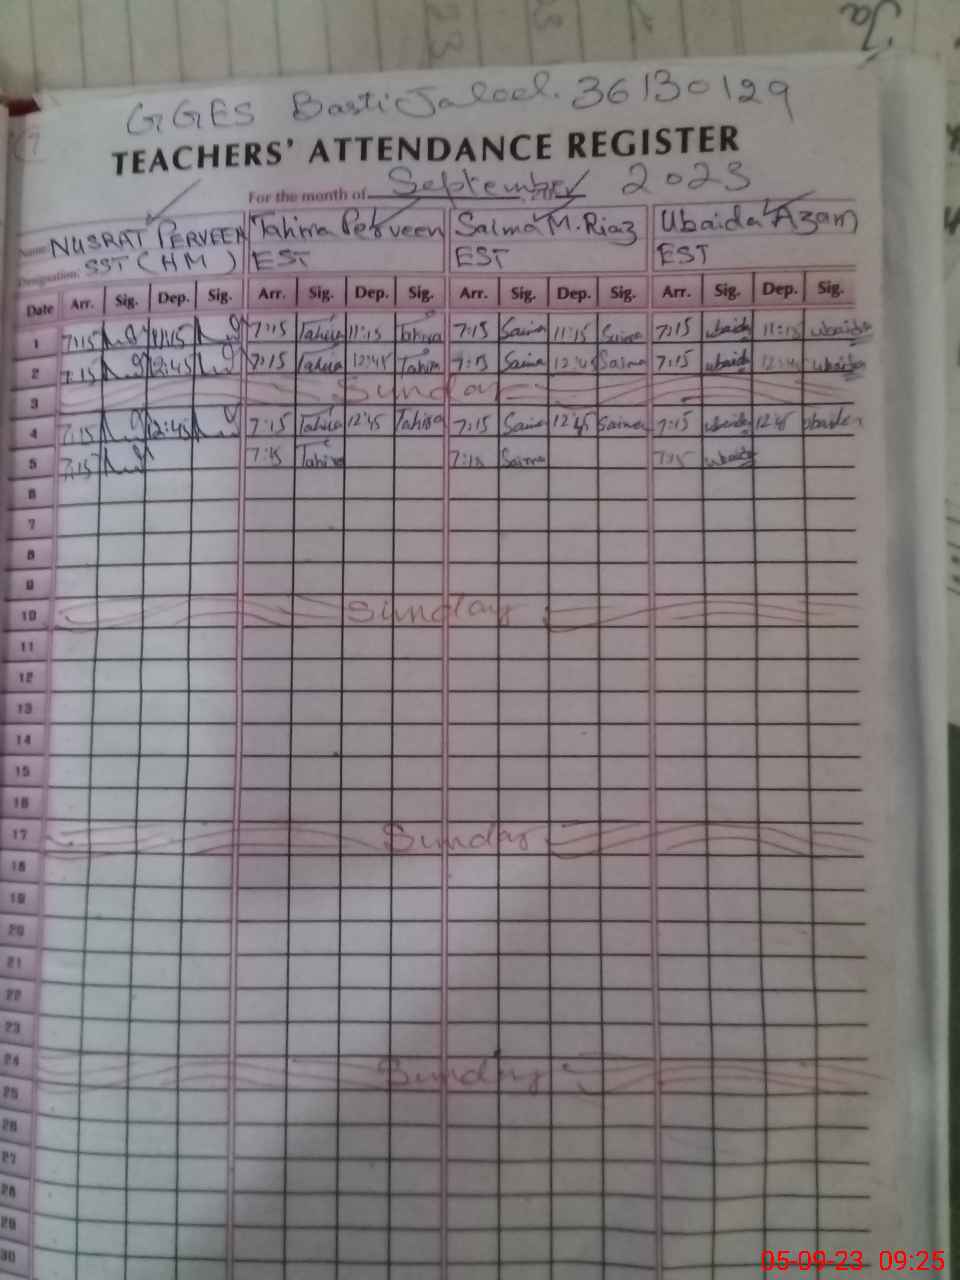 Ja
GGES Basti Jalool. 36130129
TEACHERS' ATTENDANCE REGISTER
For the month of September 2023
Name NUSRAT PERVEEN Tahira Perveen Saima M.Riaz Ubaida Azam
Designation. SST (HM) EST EST EST
Date Arr. Sig. Dep. Sig. Arr. Sig. Dep. Sig. Arr. Sig. Dep. Sig. Arr. Sig. Dep. Sig.
1 7:15 11:15 7:15 Tahira 11:15 Tahira 7:15 Saima 11:15 Saima 7:15 ubaida 11:15 ubaida
2 7:15 12:45 7:15 Tahira 12:45 Tahira 7:15 Saima 12:45 Saima 7:15 ubaida 12:45 ubaida
3 Sunday
4 7:15 12:45 7:15 Tahira 12:45 Tahira 7:15 Saima 12:45 Saima 7:15 ubaida 12:45 ubaida
5 7:15 7:15 Tahira 7:15 Saima 7:15 ubaida
6
7
8
9
10 Sunday
11
12
13
14
15
16
17 Sunday
18
19
20
21
22
23
24 Sunday
25
26
27
28
29
30
05-09-23 09:25